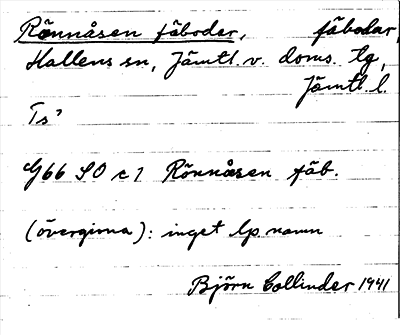 Rönnåsen fäboder, fäbodar,
Hallens sn, Jämtl. v. doms. tg,
Jämtl. l.
Ts?
G66 SO c 1 Rönnåsen fäb.
(övergivna): inget lp namn
Björn Collinder 1941